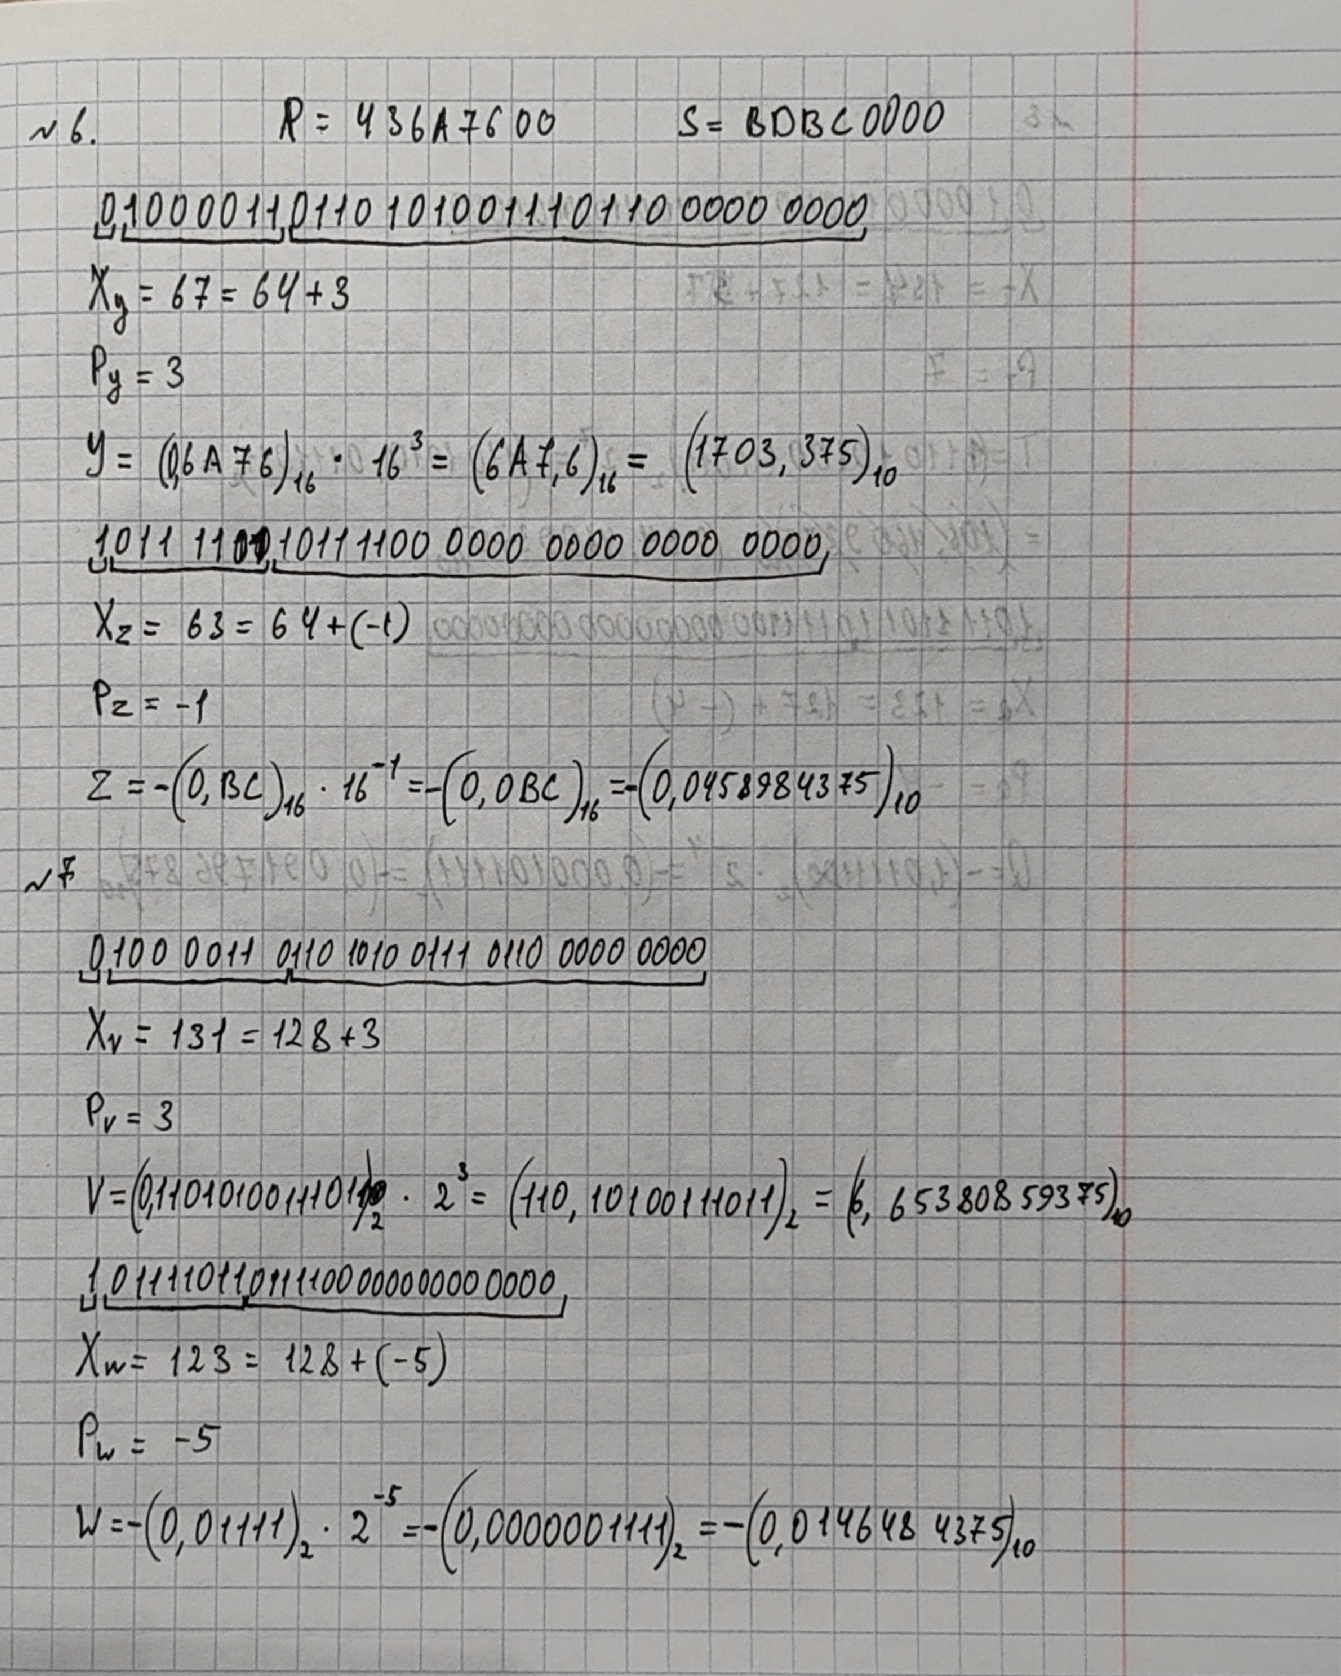 №6. R = 436A7600 S = BDBC0000
01000011011010100111011000000000
Xy = 67 = 64+3
Py = 3
Y = (0,6A76)₁₆ · 16³ = (6A7,6)₁₆ = (1703,375)₁₀
1011 1101 10111100 0000 0000 0000 0000
Xz = 63 = 64+(-1)
Pz = -1
Z = -(0,BC)₁₆ · 16⁻¹ = -(0,0BC)₁₆ = -(0,0458984375)₁₀
№7
0100 0011 0110 1010 0111 0110 0000 0000
Xv = 131 = 128+3
Pv = 3
V = (0,11010100111011)₂ · 2³ = (110,10100111011)₂ = (6,65380859375)₁₀
1 01111011 0111100000000000000
Xw = 123 = 128+(-5)
Pw = -5
W = -(0,01111)₂ · 2⁻⁵ = -(0,0000001111)₂ = -(0,0146484375)₁₀